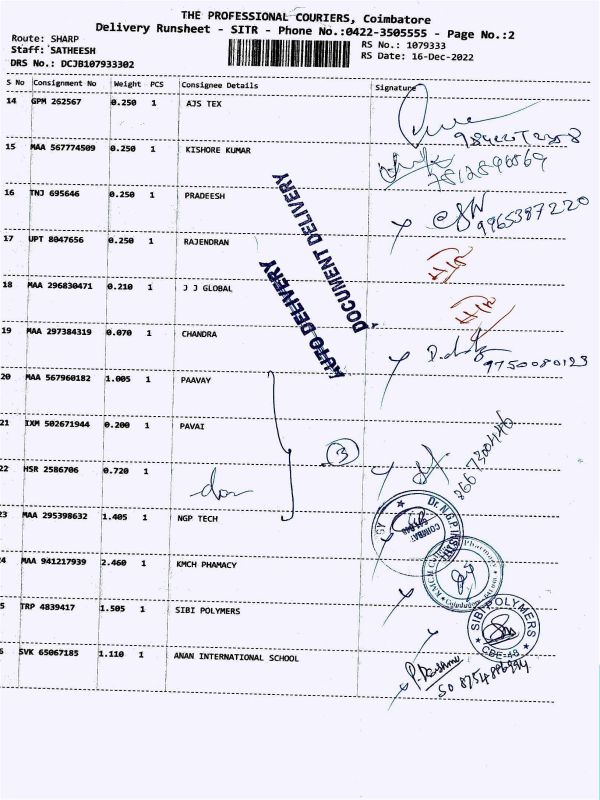 THE PROFESSIONAL COURIERS, Coimbatore
Delivery Runsheet - SITR - Phone No.:0422-3505555 - Page No.:2
Route: SHARP
Staff: SATHEESH
DRS No.: DCJB107933302
RS No.: 1079333
RS Date: 16-Dec-2022
S No Consignment No Weight PCS Consignee Details Signature
14 GPM 262567 0.250 1 AJS TEX
15 MAA 567774509 0.250 1 KISHORE KUMAR
7812896869
16 TNJ 695646 0.250 1 PRADEESH
9965387220
17 UPT 8047656 0.250 1 RAJENDRAN
18 MAA 296830471 0.210 1 J J GLOBAL
AUTO DELIVERY
DOCUMENT DELIVERY
19 MAA 297384319 0.070 1 CHANDRA
9750080123
20 MAA 567960182 1.005 1 PAAVAY
21 IXM 502671944 0.200 1 PAVAI
3
22 HSR 2586706 0.720 1
23 MAA 295398632 1.405 1 NGP TECH
24 MAA 941217939 2.460 1 KMCH PHAMACY
5 TRP 4839417 1.505 1 SIBI POLYMERS
SIBI POLYMERS
CBE-48
6 SVK 65067185 1.110 1 ANAN INTERNATIONAL SCHOOL